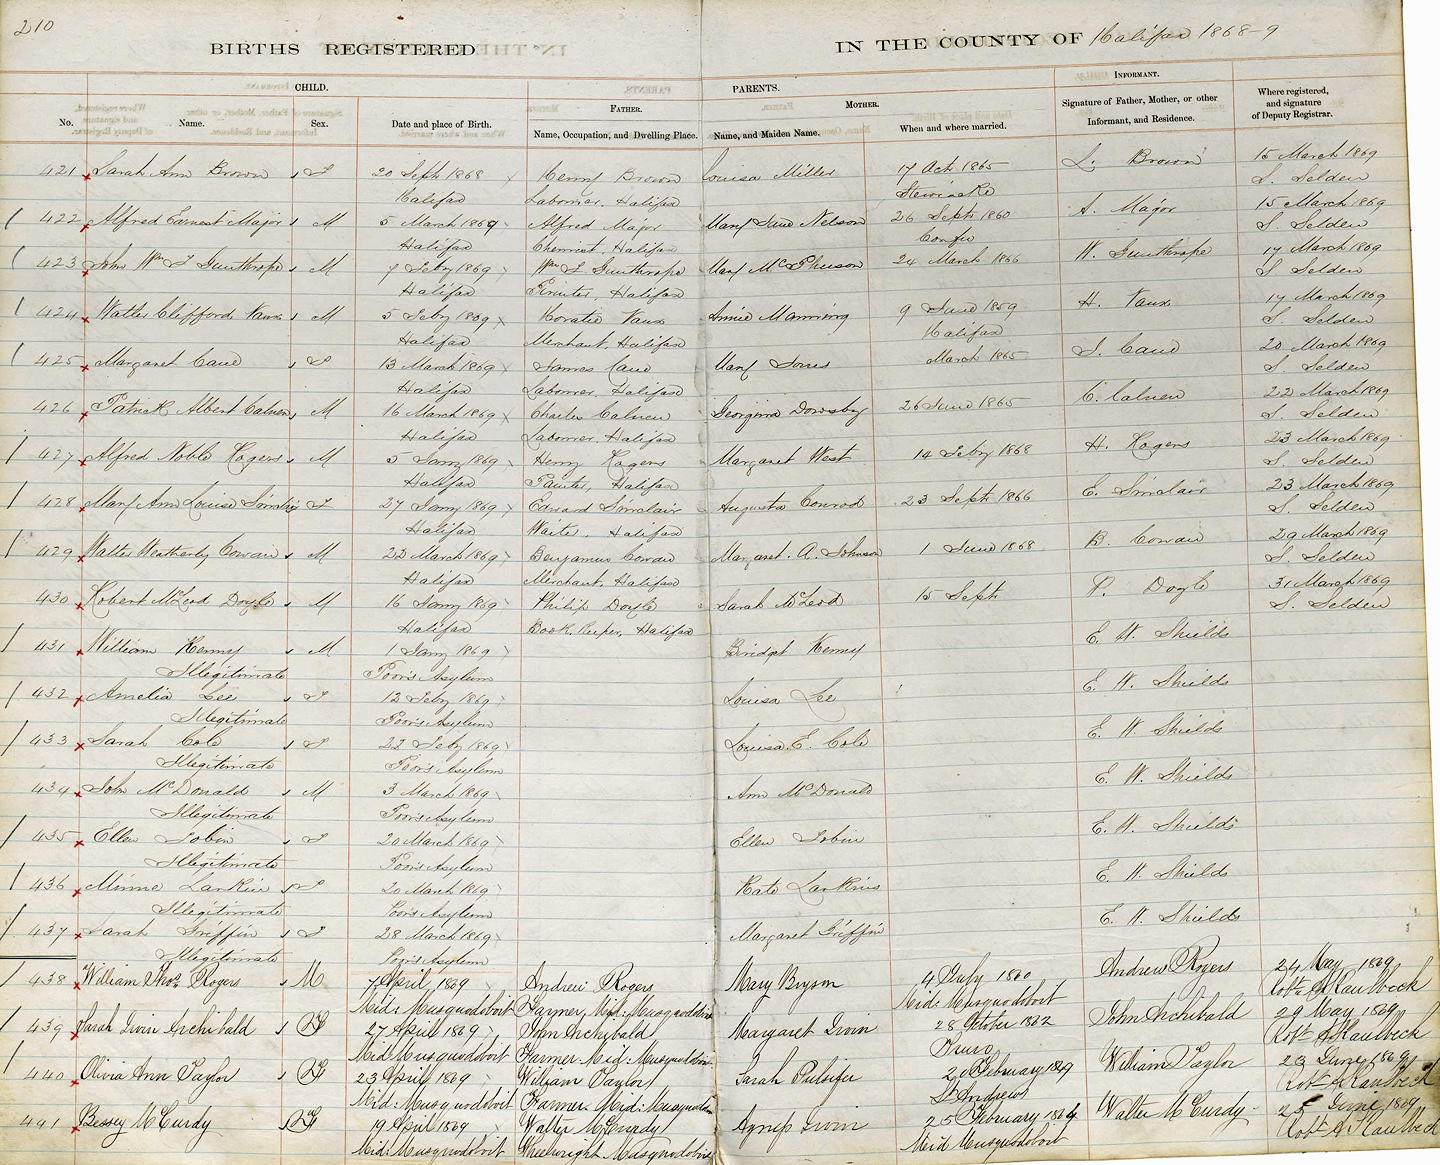 210
BIRTHS REGISTERED IN THE COUNTY OF Halifax 1868-9
CHILD. PARENTS. INFORMANT.
FATHER. MOTHER.
No. Name. Sex. Date and place of Birth. Name, Occupation, and Dwelling Place. Name, and Maiden Name. When and where married. Signature of Father, Mother, or other Informant, and Residence. Where registered, and signature of Deputy Registrar.
421 Sarah Ann Brown F 20 Sept 1868 Henry Brown Louisa Miller 17 Oct 1865 L. Brown 15 March 1869
Halifax Laborer, Halifax Stewiacke S. Selden
422 Alfred Earnest Major M 5 March 1869 Alfred Major Mary Jane Nelson 26 Sept 1860 A. Major 15 March 1869
Halifax Chemist, Halifax Corfu S. Selden
423 John Wm F Gunthrope M 7 Feby 1869 Wm F Gunthrope Mary McPherson 24 March 1866 W. Gunthrope 17 March 1869
Halifax Printer, Halifax S. Selden
424 Walter Clifford Vaux M 5 Feby 1869 Horatio Vaux Annie Manning 9 June 1859 H. Vaux 17 March 1869
Halifax Merchant, Halifax Halifax S. Selden
425 Margaret Cane F 13 March 1869 James Cane Mary Jones March 1865 J. Cane 20 March 1869
Halifax Laborer, Halifax S. Selden
426 Patrick Albert Calnen M 16 March 1869 Charles Calnen Georgina Dowsby 26 June 1865 C. Calnen 22 March 1869
Halifax Laborer, Halifax S. Selden
427 Alfred Noble Rogers M 5 Jany 1869 Henry Rogers Margaret West 14 Feby 1868 H. Rogers 23 March 1869
Halifax Painter, Halifax S. Selden
428 Mary Ann Louise Sinclair F 27 Jany 1869 Edward Sinclair Augusta Conrod 23 Sept 1866 E. Sinclair 23 March 1869
Halifax Waiter, Halifax S. Selden
429 Walter Weatherby Cowan M 22 March 1869 Benjamin Cowan Margaret. A. Johnson 1 June 1868 B. Cowan 29 March 1869
Halifax Merchant, Halifax S. Selden
430 Robert McLeod Doyle M 16 Jany 1869 Philip Doyle Sarah McLeod 15 Sept P. Doyle 31 March 1869
Halifax Book, Keeper, Halifax S. Selden
431 William Kenny M 1 Jany 1869 Bridget Kenny E. W. Shields
Illegitimate Poor's Asylum
432 Amelia Lee F 12 Feby 1869 Louisa Lee E. W. Shields
Illegitimate Poor's Asylum
433 Sarah Cole F 22 Feby 1869 Louisa. E. Cole E. W. Shields
Illegitimate Poor's Asylum
434 John McDonald M 3 March 1869 Ann McDonald E. W. Shields
Illegitimate Poor's Asylum
435 Ellen Tobin F 20 March 1869 Ellen Tobin E. W. Shields
Illegitimate Poor's Asylum
436 Minnie Larkin F 20 March 1869 Kate Larkins E. W. Shields
Illegitimate Poor's Asylum
437 Sarah Griffin F 28 March 1869 Margaret Griffin E. W. Shields
Illegitimate Poor's Asylum
438 William Thos. Rogers M 7 April 1869 Andrew Rogers Mary Bryson 4 July 1860 Andrew Rogers 24 May 1869
Mid: Musquodoboit Farmer, Mid: Musquodoboit Mid: Musquodoboit Robt A Kaulbeck
439 Sarah Irvin Archibald F 27 April 1869 John Archibald Margaret Irvin 28 October 1862 John Archibald 29 May 1869
Mid: Musquodoboit Farmer Mid: Musquodoboit Truro Robt A Kaulbeck
440 Olivia Ann Taylor F 23 April 1869 William Taylor Sarah Pulsifer 20 February 1849 William Taylor 23 June 1869
Mid: Musquodoboit Farmer Mid: Musquodoboit St Andrews Robt A Kaulbeck
441 Bessey McCurdy F 19 April 1869 Walter McCurdy Agness Irvin 25 February 1864 Walter McCurdy 25 June 1869
Mid: Musquodoboit Wheelwright Musquodoboit Mid Musquodoboit Robt A Kaulbeck